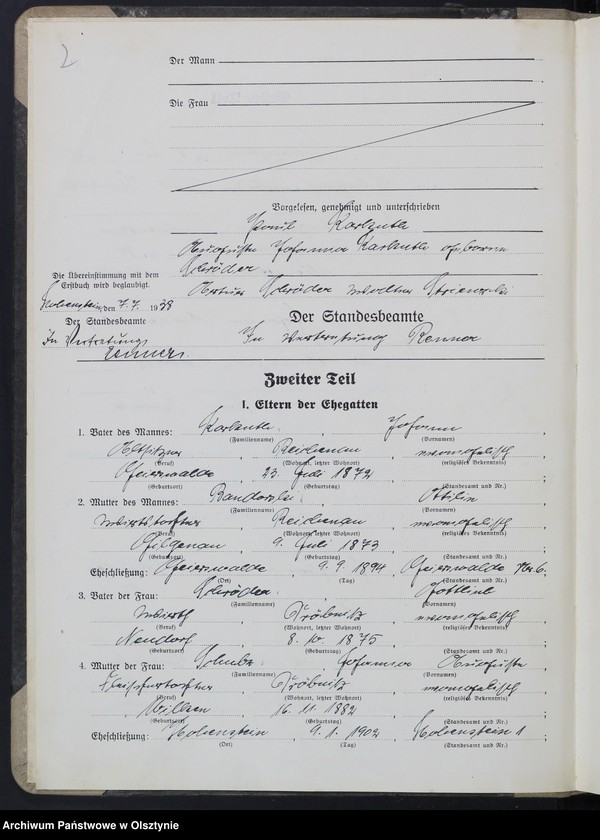 2
Der Mann
Die Frau
Vorgelesen, genehmigt und unterschrieben
Paul Karlauth
Johanna Karlauth geborene
Schröder
Schröder
Die Übereinstimmung mit dem
Erstbuch wird beglaubigt.
Hohenstein, den 7. 7. 1938
Der Standesbeamte
In Vertretung
Der Standesbeamte
In Vertretung Renner
Zweiter Teil
I. Eltern der Ehegatten
1. Vater des Mannes: Johann
(Familienname) (Vornamen)
Altsitzer, Reichenau, evangelisch
(Beruf) (Wohnort, letzter Wohnort) (religiöses Bekenntnis)
Geierswalde 23 Juli 1872
(Geburtsort) (Geburtstag) (Standesamt und Nr.)
2. Mutter des Mannes: Ottilie
(Familienname) (Vornamen)
Wirtstochter, Reichenau, evangelisch
(Beruf) (Wohnort, letzter Wohnort) (religiöses Bekenntnis)
Gilgenau, 9. Juli 1873
(Geburtsort) (Geburtstag) (Standesamt und Nr.)
Eheschließung: Geierswalde, 9. 9. 1894, Geierswalde Nr. 6.
(Ort) (Tag) (Standesamt und Nr.)
3. Vater der Frau: Schröder, Gottlieb
(Familienname) (Vornamen)
Wirth, Dröbnitz, evangelisch
(Beruf) (Wohnort, letzter Wohnort) (religiöses Bekenntnis)
Neudorf, 8. 10. 1875
(Geburtsort) (Geburtstag) (Standesamt und Nr.)
4. Mutter der Frau: Johanna Auguste
(Familienname) (Vornamen)
Dröbnitz, evangelisch
(Beruf) (Wohnort, letzter Wohnort) (religiöses Bekenntnis)
Wilken, 16. 11. 1882
(Geburtsort) (Geburtstag) (Standesamt und Nr.)
Eheschließung: Hohenstein, 9. 1. 1902, Hohenstein 1
(Ort) (Tag) (Standesamt und Nr.)
Archiwum Państwowe w Olsztynie